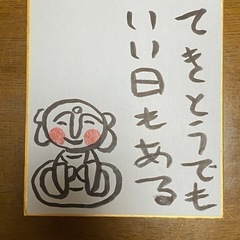 てきとうでも
いい日もある